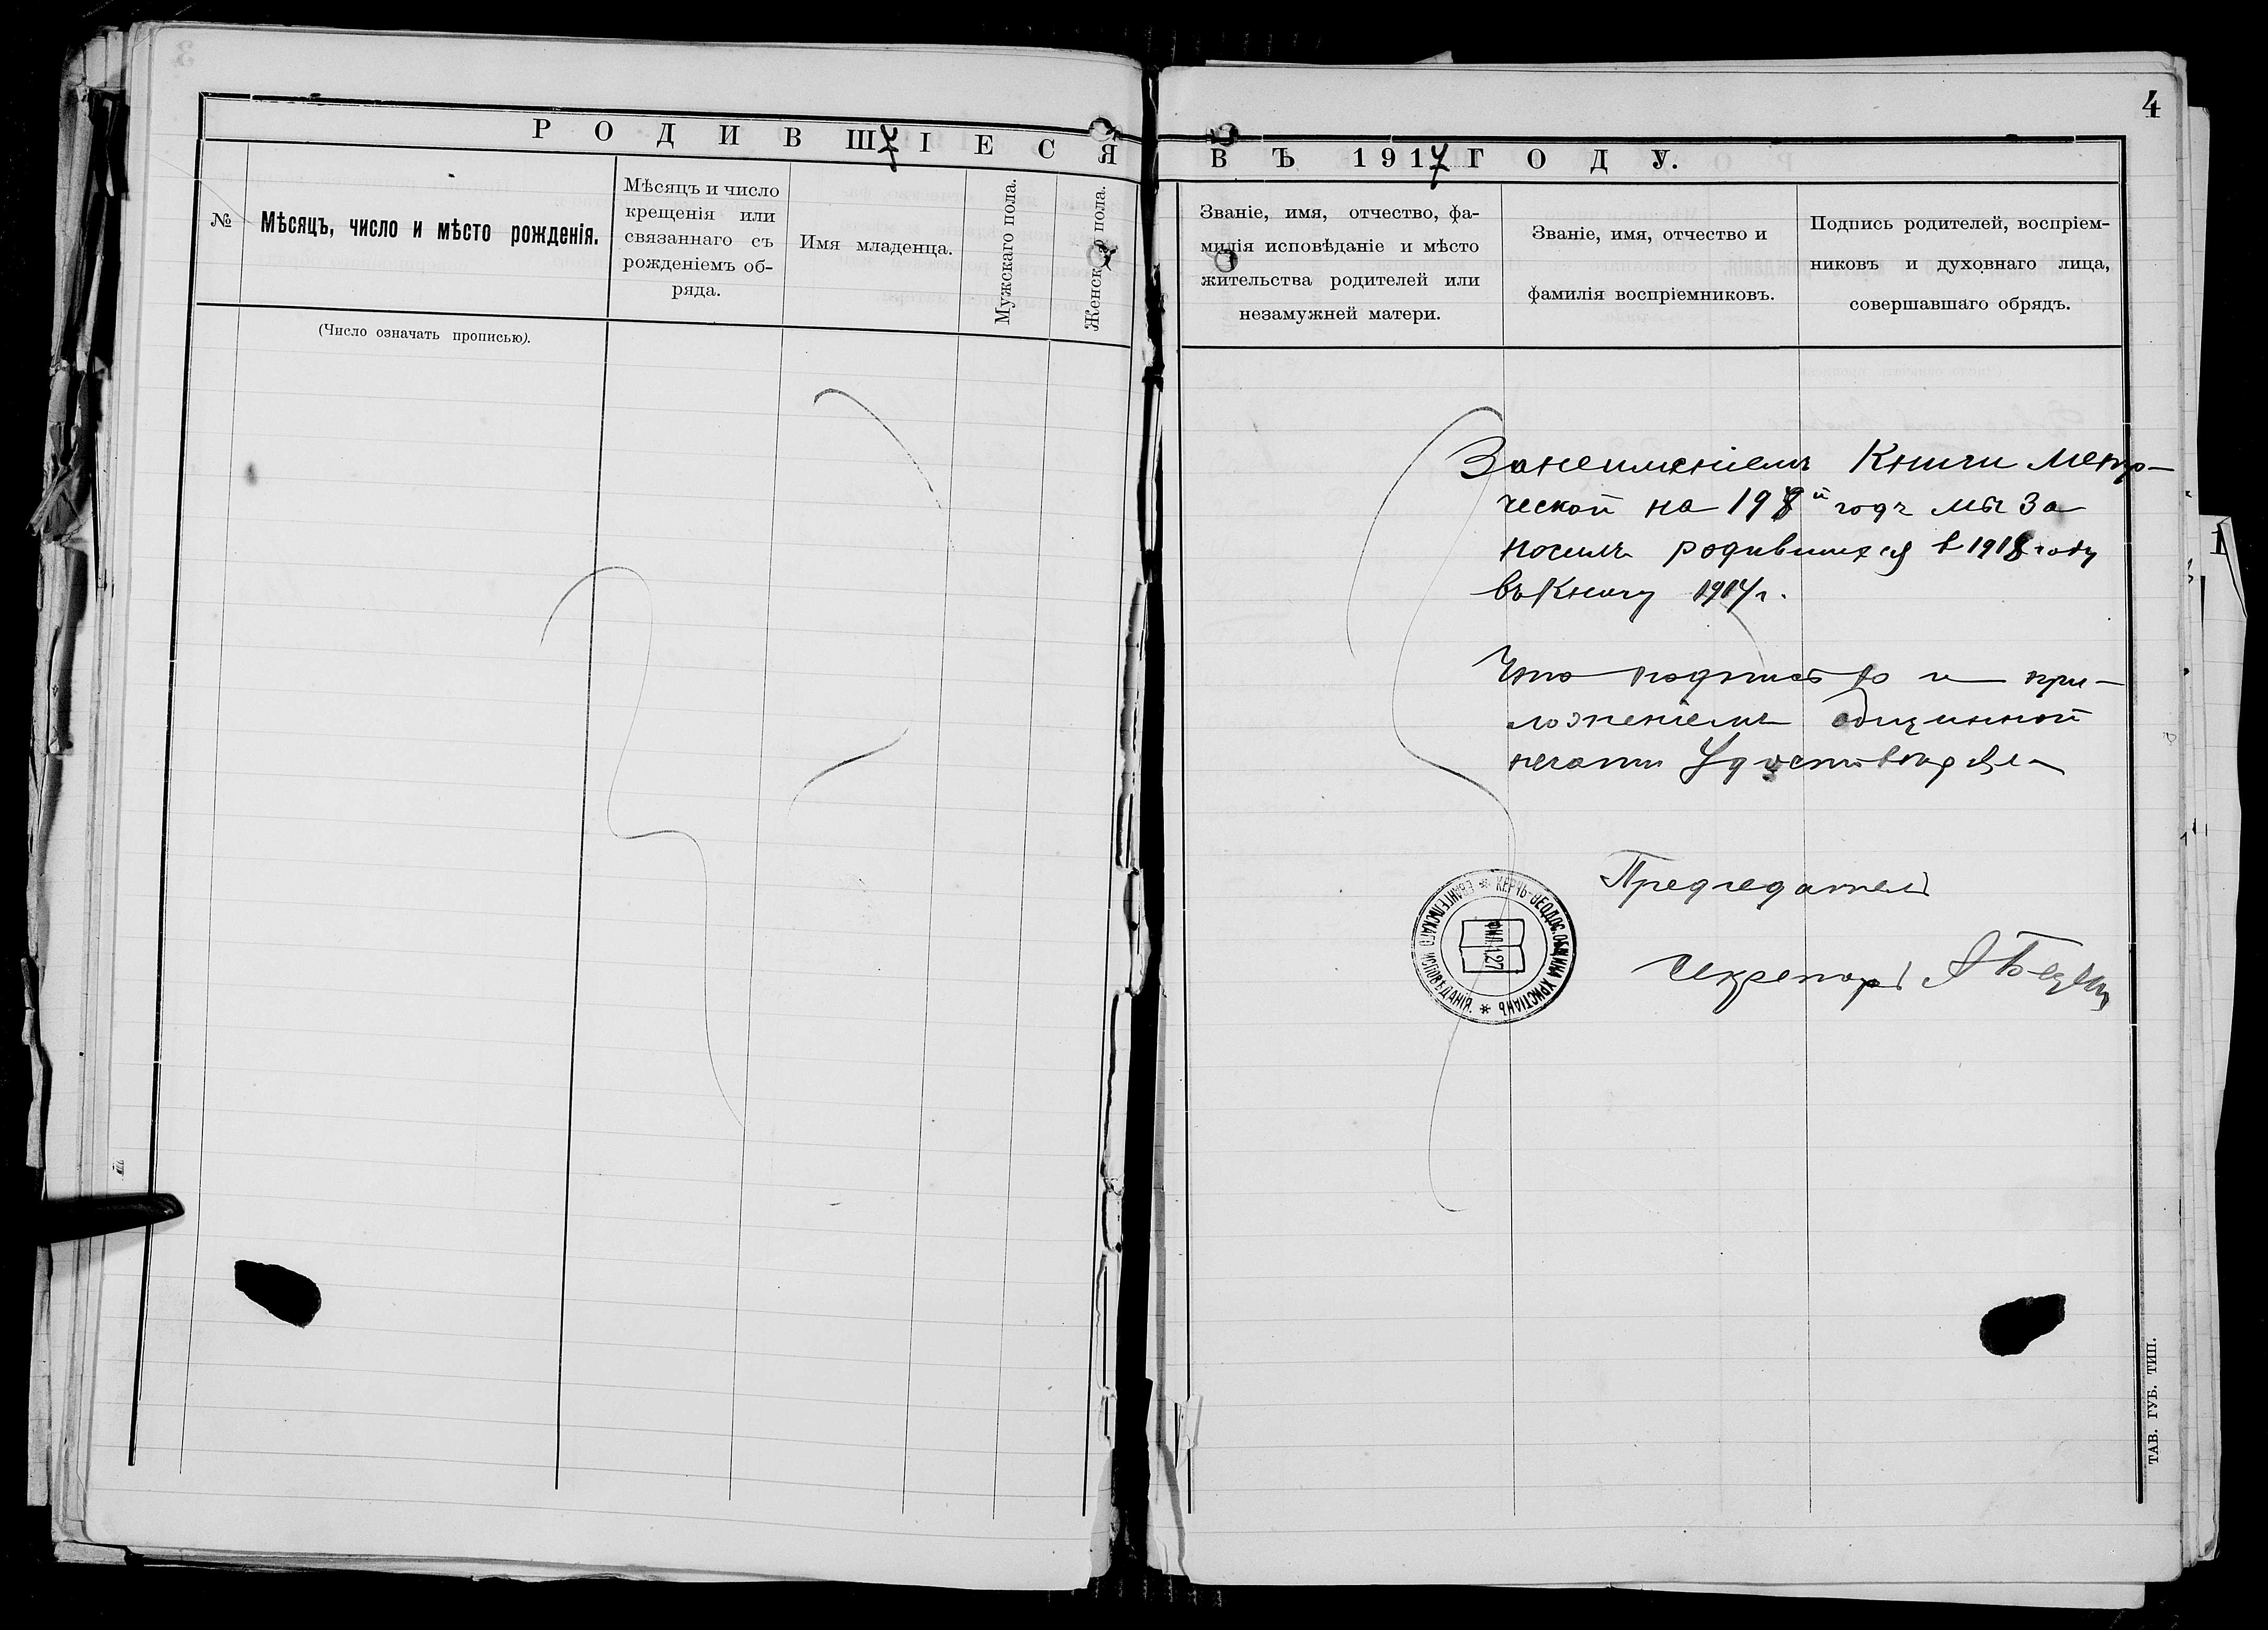 4
РОДИВШІЕСЯ ВЪ 1917 ГОДУ.
№
Мѣсяцъ, число и мѣсто рожденія.
(Число означать прописью).
Мѣсяцъ и число
крещенія или
связаннаго съ
рожденіемъ об-
ряда.
Имя младенца.
Мужскаго пола.
Женскаго пола.
Званіе, имя, отчество, фа-
милія исповѣданіе и мѣсто
жительства родителей или
незамужней матери.
Званіе, имя, отчество и
фамилія воспріемниковъ.
Подпись родителей, воспріем-
никовъ и духовнаго лица,
совершавшаго обрядъ.
Занеимением Книги Метр-
ческой на 1918й годъ мы за
носимъ родившихся в 1918 году
въ Книгу 1917 г.
Что подписью и при-
ложеніемъ общинной
печати
Председатель
Секретарь
КЕРЧЬ-ѲЕОДОС. ОБЩИНА ХРИСТІАНЪ * ЕВАНГЕЛЬСКАГО ИСПОВЕДАНІЯ. *
ФИЛ. 1.27
ТАВ. ГУБ. ТИП.